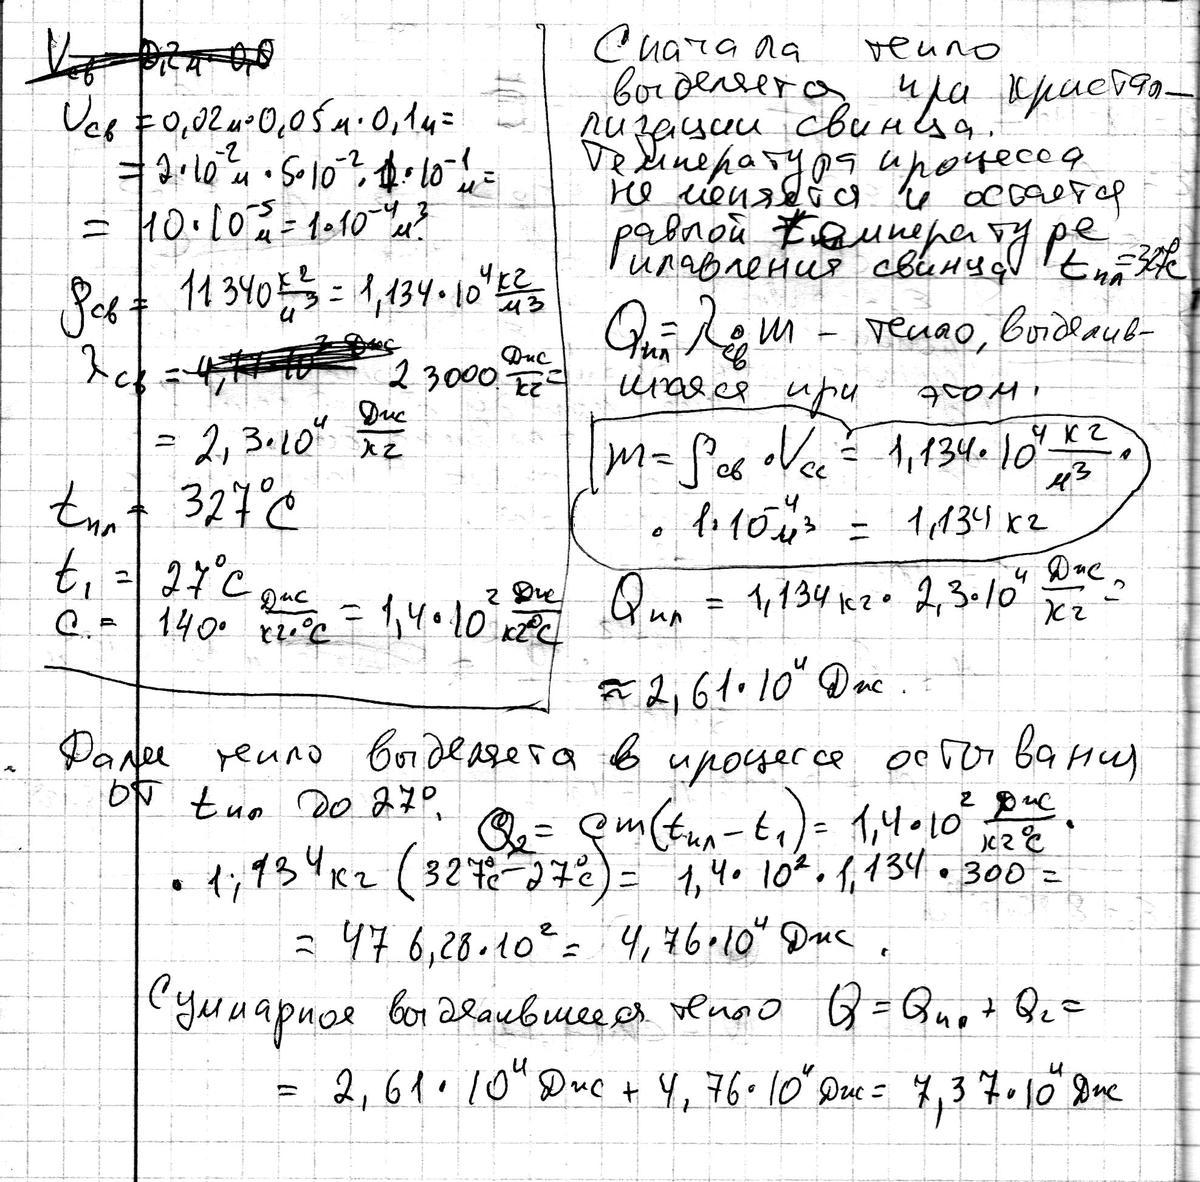 Vсв = 0,02м·0,05м·0,1м=
= 2·10⁻²м·5·10⁻²·1·10⁻¹м=
= 10·10⁻⁵м = 1·10⁻⁴м³.
ρсв = 11340 кг/м³ = 1,134·10⁴ кг/м³
λсв = 23000 Дж/кг =
= 2,3·10⁴ Дж/кг
tпл = 327°С
t₁ = 27°С
С. = 140· Дж/кг·°С = 1,4·10² Дж/кг°С
Сначала тепло
выделяется при кристал-
лизации свинца.
Температура процесса
не меняется и остается
равной температуре
плавления свинца tпл=327°С
Qпл = λсв·m – тепло, выделив-
шаяся при этом.
m = ρсв·Vсв = 1,134·10⁴ кг/м³ ·
· 1·10⁻⁴м³ = 1,134 кг
Qпл = 1,134кг· 2,3·10⁴ Дж/кг =
≈ 2,61·10⁴ Дж.
Далее тепло выделяется в процессе остывания
от tпл до 27°.
Q₂ = Cm(tпл – t₁) = 1,4·10² Дж/кг°С ·
· 1,134кг (327°С – 27°С) = 1,4·10²·1,134·300 =
= 476,28·10² = 4,76·10⁴ Дж.
Суммарное выделившееся тепло Q = Qпл + Q₂ =
= 2,61·10⁴ Дж + 4,76·10⁴ Дж = 7,37·10⁴ Дж